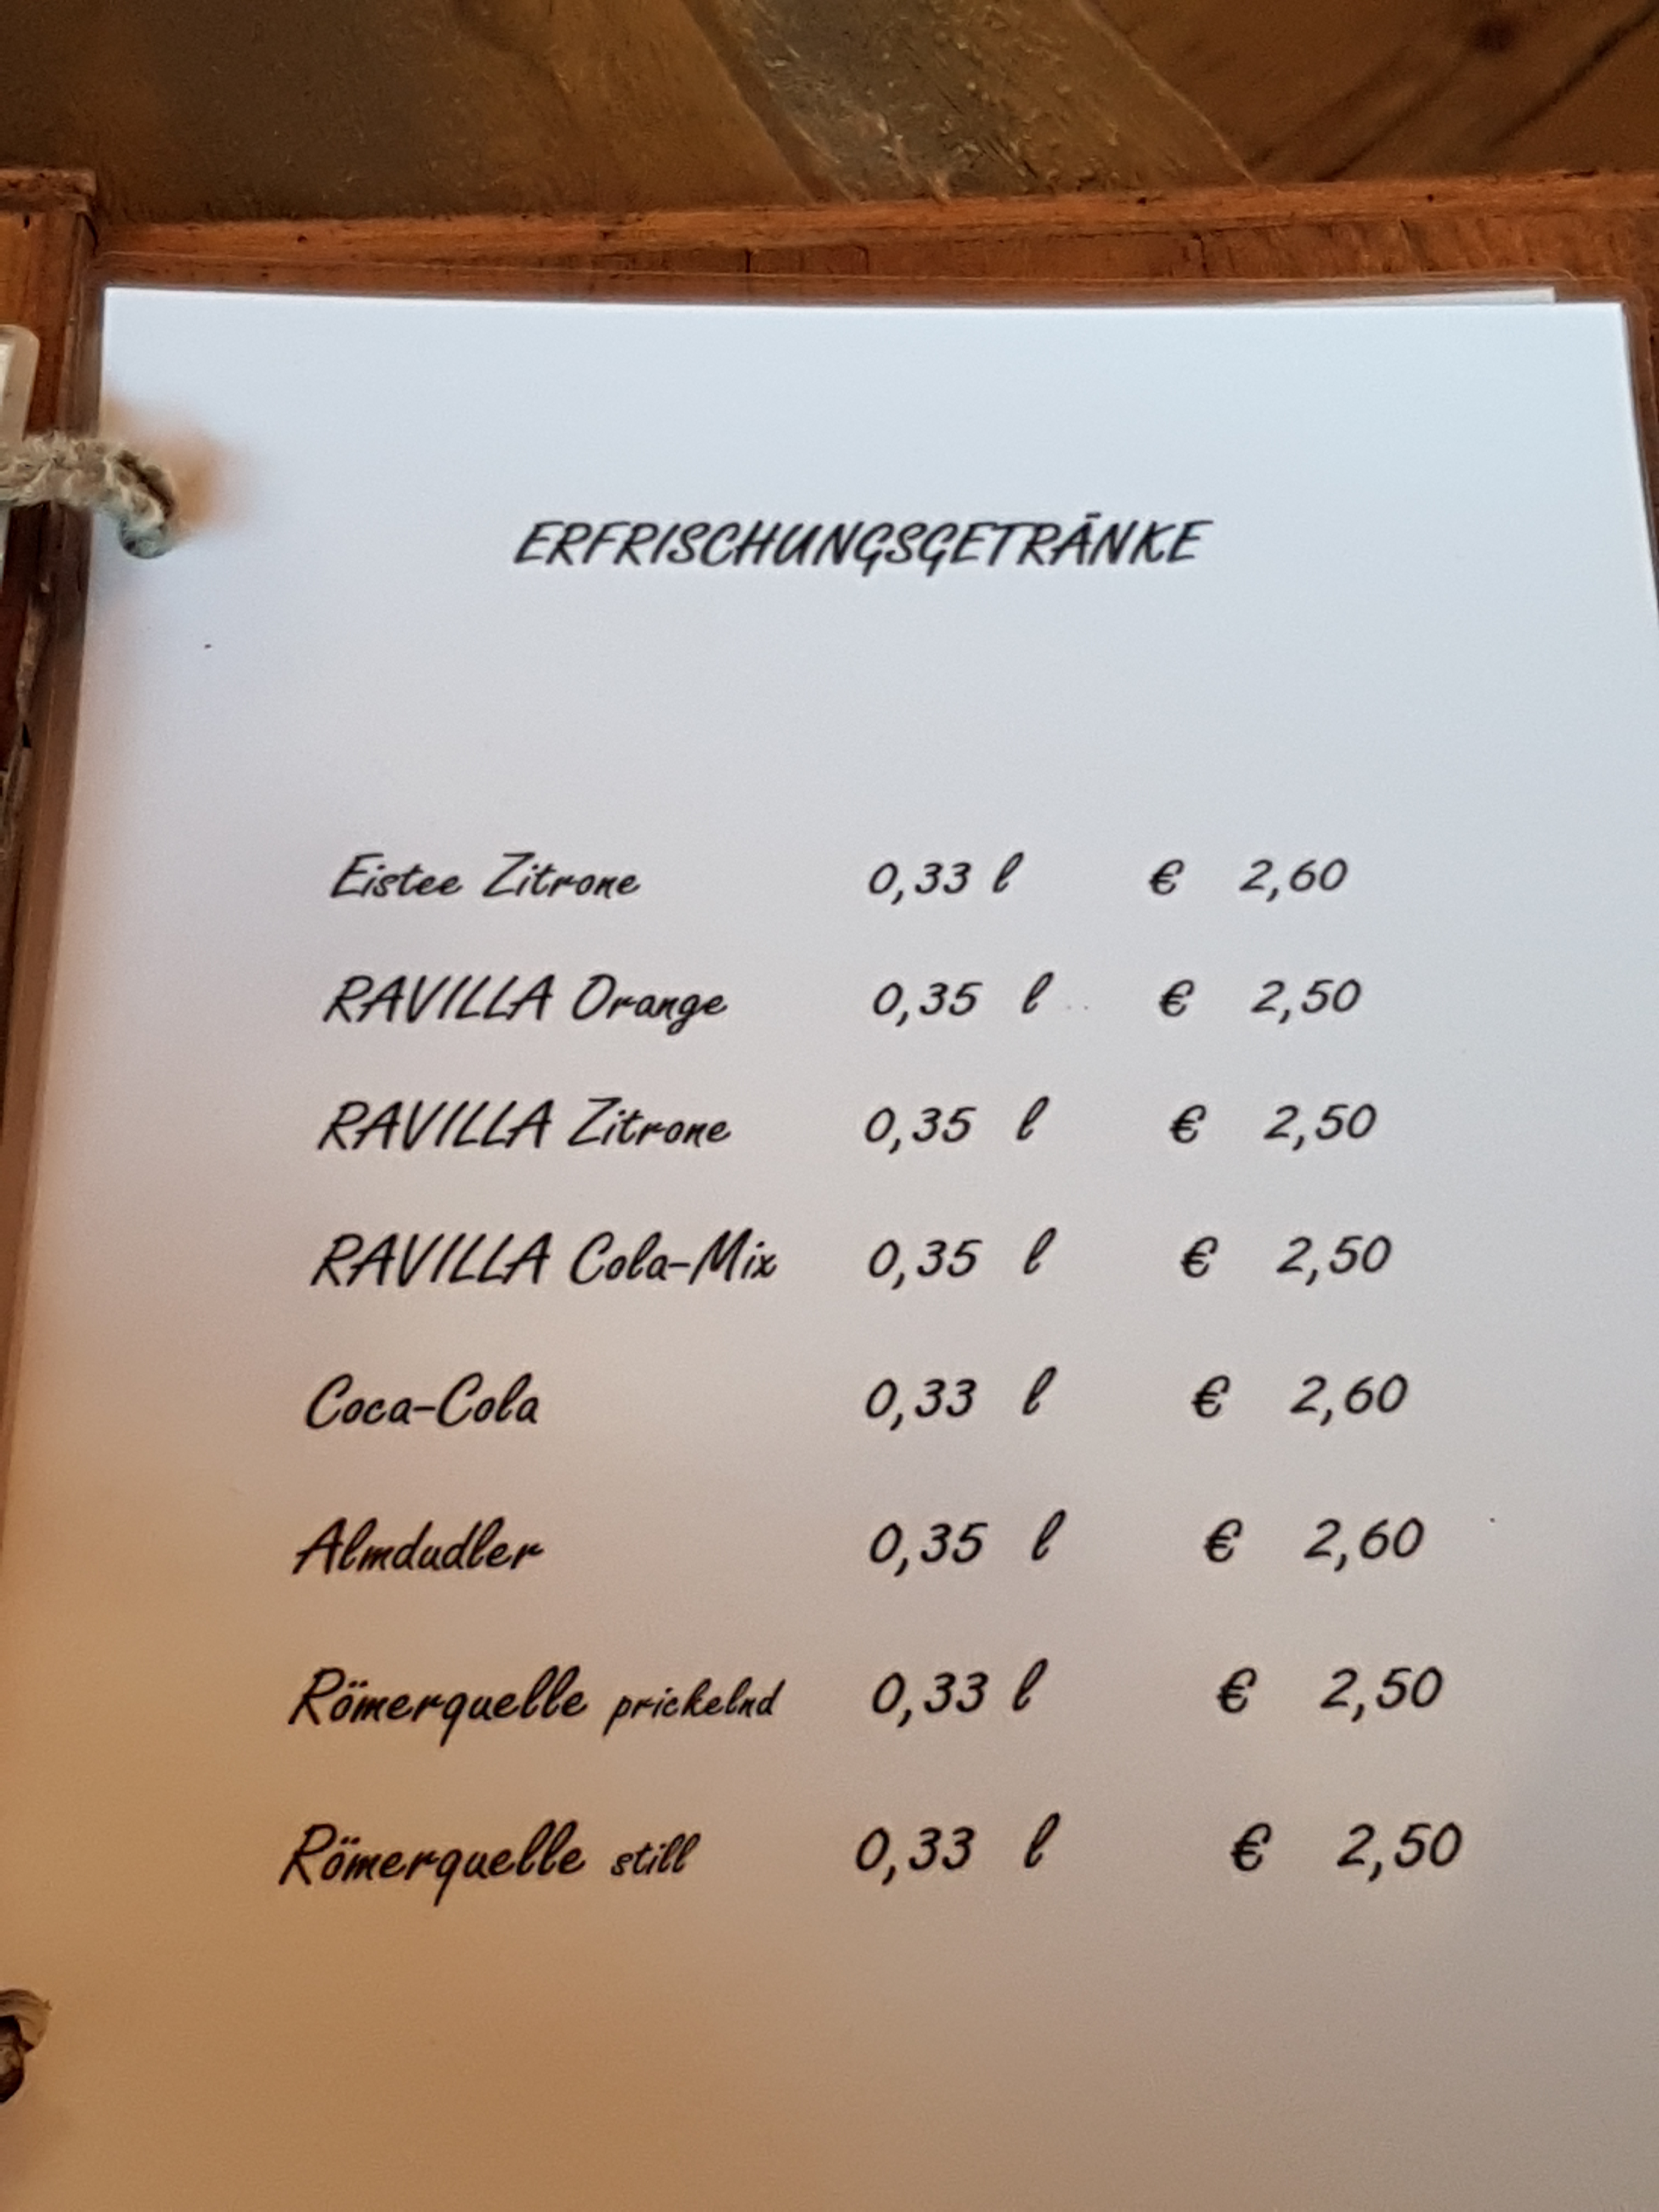 ERFRISCHUNGSGETRÄNKE
Eistee Zitrone 0,33 l € 2,60
RAVILLA Orange 0,35 l € 2,50
RAVILLA Zitrone 0,35 l € 2,50
RAVILLA Cola-Mix 0,35 l € 2,50
Coca-Cola 0,33 l € 2,60
Almdudler 0,35 l € 2,60
Römerquelle prickelnd 0,33 l € 2,50
Römerquelle still 0,33 l € 2,50